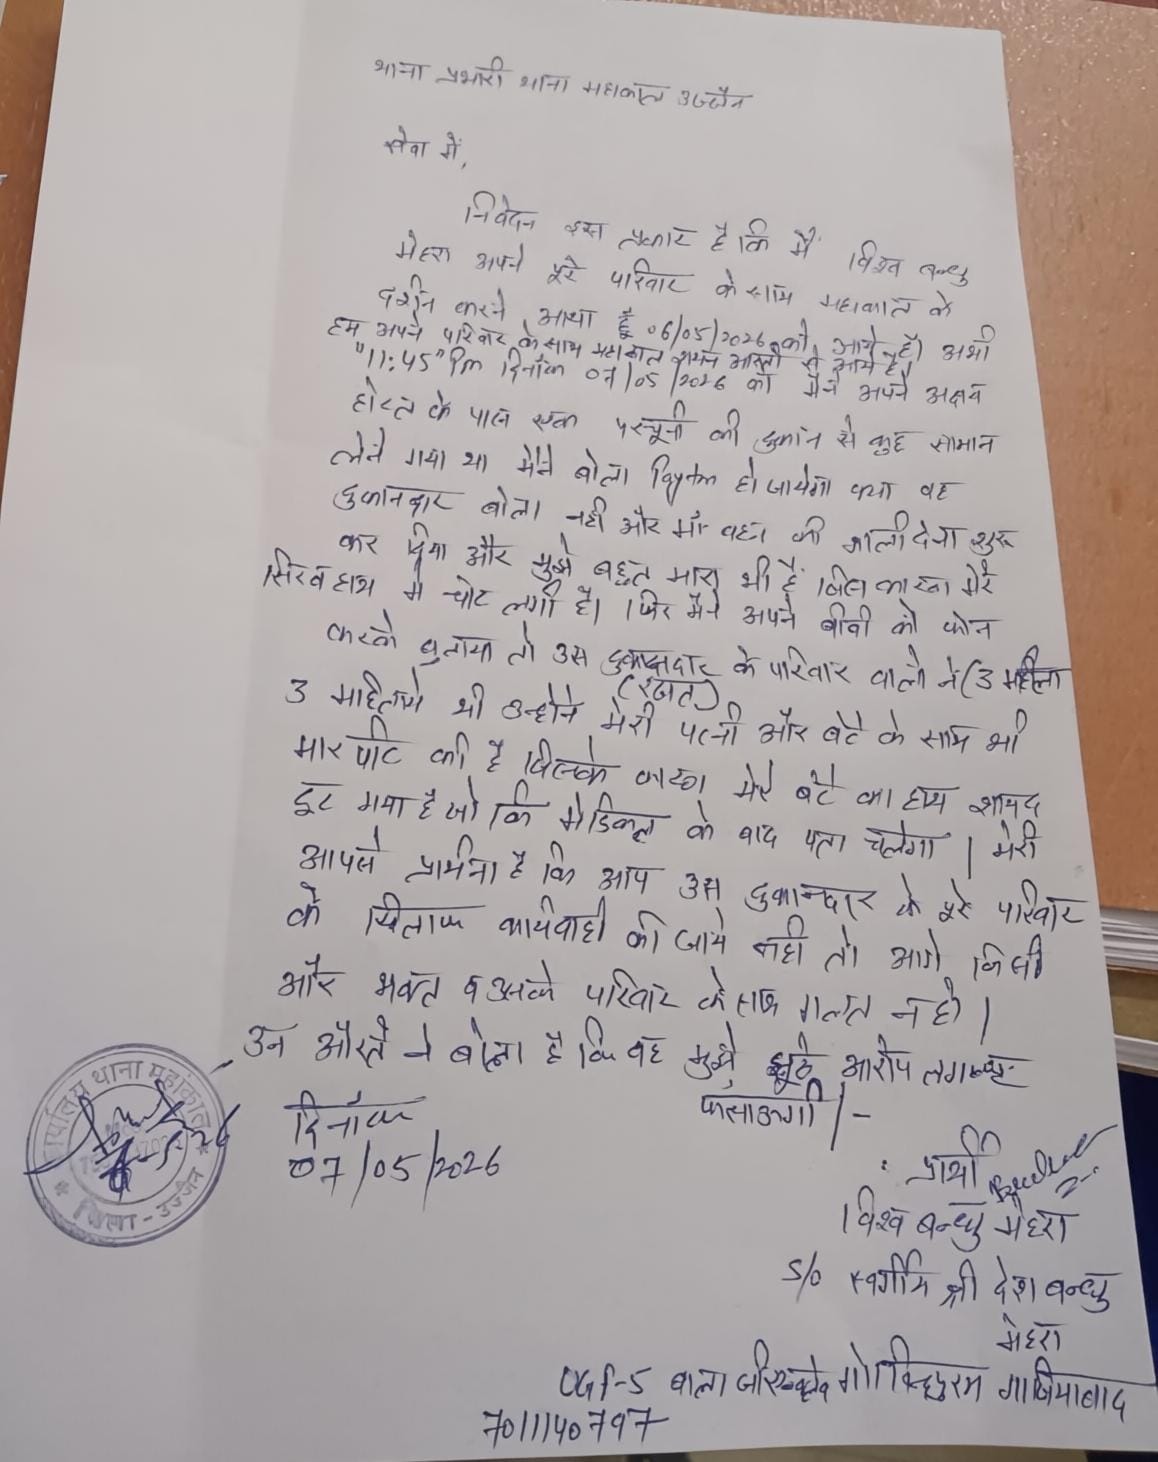 थाना प्रभारी थाना महाकाल उज्जैन
सेवा में,
निवेदन इस प्रकार है कि मैं विश्व बन्धु
मेहरा अपने पूरे परिवार के साथ महाकाल के
दर्शन करने आया हूँ 06/05/2026 को आये है। अभी
हम अपने परिवार के साथ महाकाल शयन आरती से आये है।
"11:45" Pm दिनाँक 07/05/2026 को मैने अपने अक्षय
होटल के पास एक परचूनी की दुकान से कुछ सामान
लेने गया था मैने बोला Paytm हो जायेगा क्या वह
दुकानदार बोला नही और माँ बहन की गाली देना शुरू
कर दिया और मुझे बहुत मारा भी है जिस कारण मेरे
सिर व हाथ में चोट लगी है। फिर मैने अपने बीवी को फोन
करके बुलाया तो उस दुकानदार के परिवार वालो ने (3 महीला
(रजत)
3 महिलाये थी उन्होने मेरी पत्नी और बेटे के साथ भी
मार पीट की है जिसके कारण मेरे बेटे का हाथ शायद
टूट गया है जो कि मेडिकल के बाद पता चलेगा। मेरी
आपसे प्रार्थना है कि आप उस दुकानदार के पूरे परिवार
के खिलाफ कार्यवाही की जाये नही तो आगे किसी
और भक्त व उसके परिवार के साथ गलत न हो।
उन औरतै ने बोला है कि वह मुझे झूठे आरोप लगाकर
फंसाऊगी/-
दिनाँक
07/05/2026
प्रार्थी
विश्व बन्धु मेहरा
S/o स्वर्गीय श्री देश बन्धु
मेहरा
OGF-5 बाला जी एन्क्लेव गोविन्दपुरम गाजियाबाद
7011140797
थाना महाकाल
जिला - उज्जैन